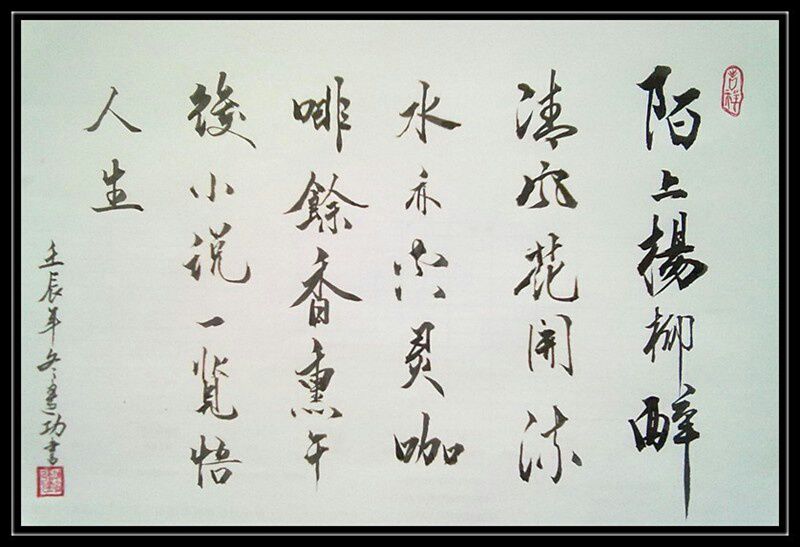 吉祥
陌上楊柳醉
清風花開流
水亦空灵咖
啡餘香熏午
後小说一覽悟
人生
壬辰年冬功書